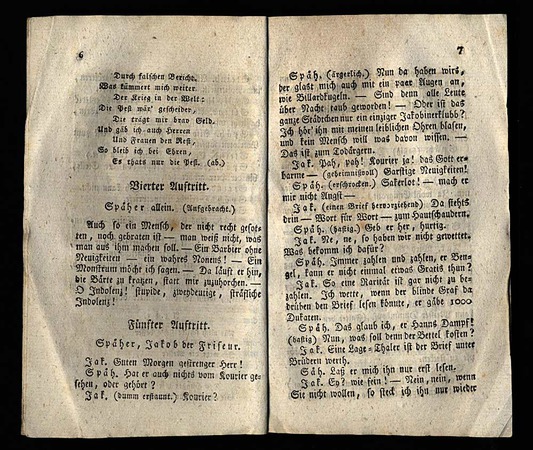 6
Durch falschen Bericht.
Was kümmert mich weiter
Der Krieg in der Welt:
Die Pest wär' gescheider,
Die trägt mir brav Geld.
Und gäb ich auch Herren
Und Frauen den Rest,
So bleib ich bei Ehren,
Es thats nur die Pest. (ab.)
Vierter Auftritt.
Späher allein. (Aufgebracht.)
Auch so ein Mensch, der nicht recht gesot-
ten, noch gebraten ist — man weiß nicht, was
man aus ihm machen soll. — Ein Barbier ohne
Neuigkeiten — ein wahres Nonens! — Ein
Monstrum möcht ich sagen. — Da läuft er hin,
die Bärte zu kratzen, statt mir zuzuhorchen. —
O Indolenz! stupide, zweydeutige, sträfliche
Indolenz!
Fünfter Auftritt.
Späher, Jakob der Friseur.
Jak. Guten Morgen gestrenger Herr!
Späh. Hat er auch nichts vom Kourier ge-
sehen, oder gehört?
Jak. (dumm erstaunt.) Kourier?
7
Späh. (ärgerlich.) Nun da haben wirs,
der glast mich auch mit ein paar Augen an,
wie Billardkugeln. — Sind denn alle Leute
über Nacht taub geworden! — Oder ist das
ganze Städtchen nur ein einziger Jakobinerklubb?
Ich hör' ihn mit meinen leiblichen Ohren blasen,
und kein Mensch will was davon wissen. —
Das ist zum Todärgern.
Jak. Pah, pah! Kourier ja! das Gott er-
barme — (geheimnißvoll) Garstige Neuigkeiten!
Späh. (erschrocken.) Sakerlot! — mach er
mir nicht Angst —
Jak. (einen Brief hervorziehend) Da stehts
drin — Wort für Wort — zum Hautschaudern.
Späh. (hastig.) Geb er her, hurtig.
Jak. Ne, ne, so haben wir nicht gewettet.
Was bekomm ich dafür?
Späh. Immer zahlen und zahlen, er Ben-
gel, kann er nicht einmal etwas Gratis thun?
Jak. So eine Rarität ist gar nicht zu be-
zahlen. Ich wette, wenn der blinde Graf da
drüben den Brief lesen könnte, er gäbe 1000
Dukaten.
Späh. Das glaub ich, er Hanns Dampf!
(hastig) Nun, was soll denn der Bettel kosten?
Jak. Eine Lage-Thaler ist der Brief unter
Brüdern werth.
Säh. Laß er mich ihn nur erst lesen.
Jak. Ey? wie fein! — Nein, nein, wenn
Sie nicht wollen, so steck ich ihn nur wieder